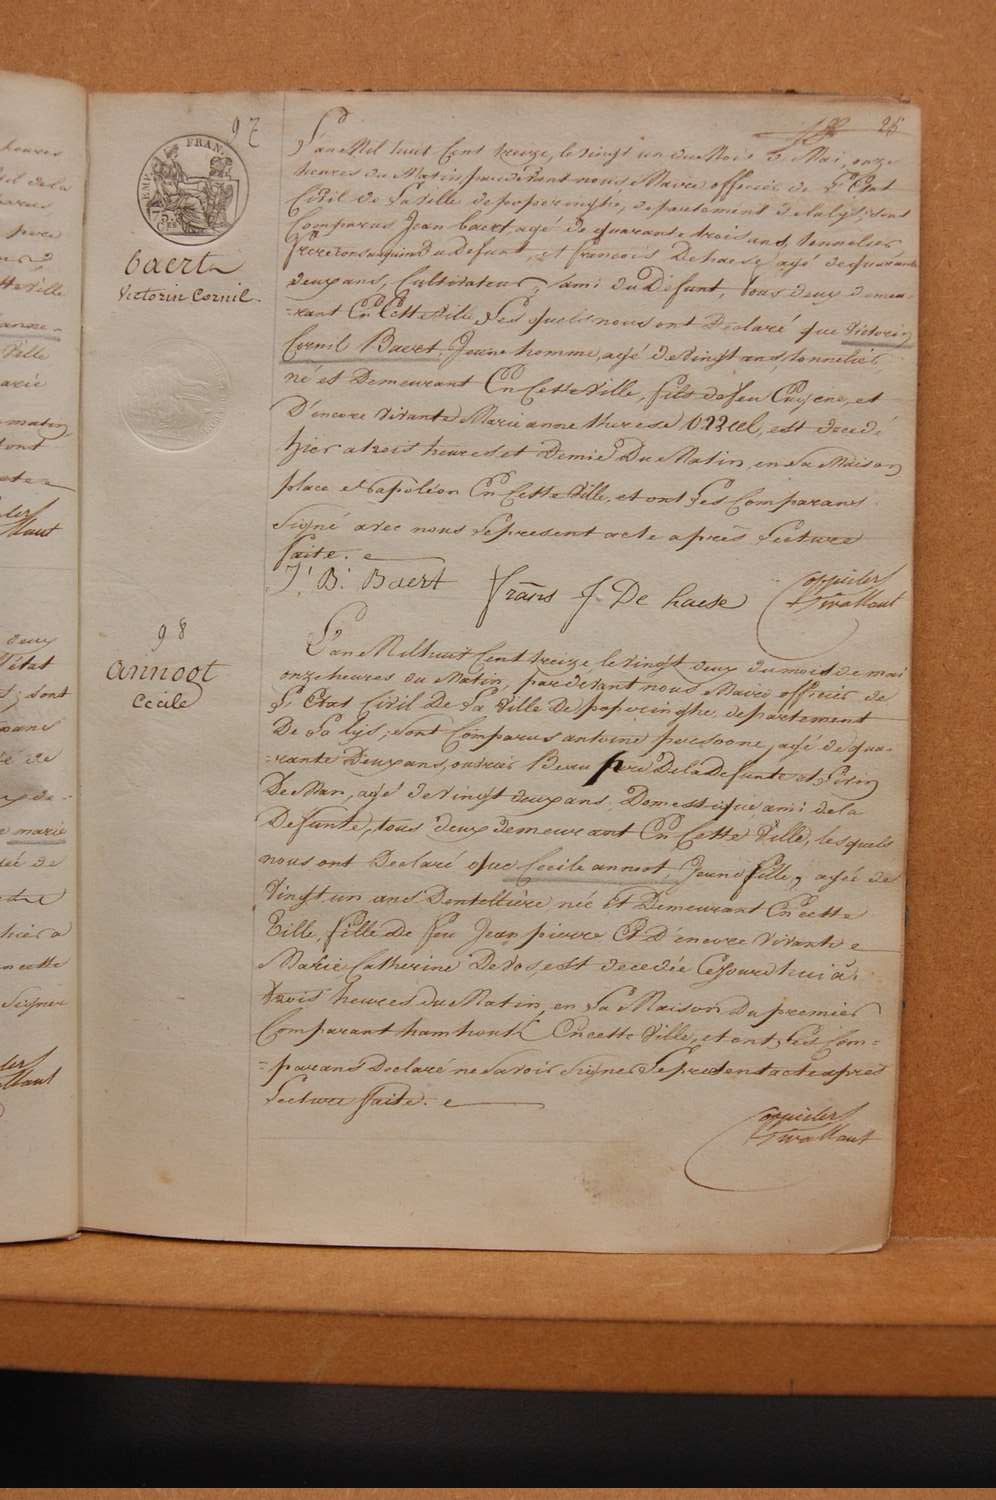 97
25
EMP. FRAN.
75
Cen
Baert
Victorin Cornil.
L'an Mil huit Cent treize, le vingt un du Mois de Mai, onze
heures du Matin, pardevant nous Maire officier de L'Etat
Civil de La Ville de poperinghe, departement de la lys; sont
Comparus Jean baert, agé de quarante trois ans, tonnelier
frere consanguin du defunt, et francois Dehaese, agé de quarante
deux ans, Cultivateur, ami du Défunt, tous deux demeu-
-rant En Cette Ville, Lesquels nous ont Déclaré que Victorin
Cornil Baert, Jeune homme, agé de vingt ans, tonnelier,
né et Demeurant En Cette Ville, fils de feu Eugene, et
D'encore vivante Marie anne therese, est decedé
hier a trois heures et Demie Du Matin, en sa Maison
place Napoléon En Cette Ville, et ont Les Comparans
Signé avec nous Le present acte après Lecture
faite.
J. B. Baert
frans J. De haese
98
annoot
Cecile
L'an Mil huit Cent treize le vingt deux du mois de mai
onze heures du Matin, pardevant nous Maire officier de
L'Etat Civil De La Ville De poperinghe, departement
De La lys; sont Comparus antoine persoone, agé de qua-
-rante Deux ans, ouvrier Beau pere De la Defunte et
De Man, agé de vingt deux ans, Domestique, ami de la
Defunte, tous deux demeurant En Cette Ville, lesquels
nous ont Declaré que Cecile annoot, Jeune fille, agée de
vingt un ans Dentellière, née Et Demeurant En cette
Ville, fille de feu Jean pierre Et D'encore vivante
Marie Catherine Devos, est decedée Cejourd'hui à
trois heures du Matin, en La Maison Du premier
Comparant En cette Ville, et ont Les Com-
-parans Declaré ne Savoir Signer Le present acte après
Lecture faite.